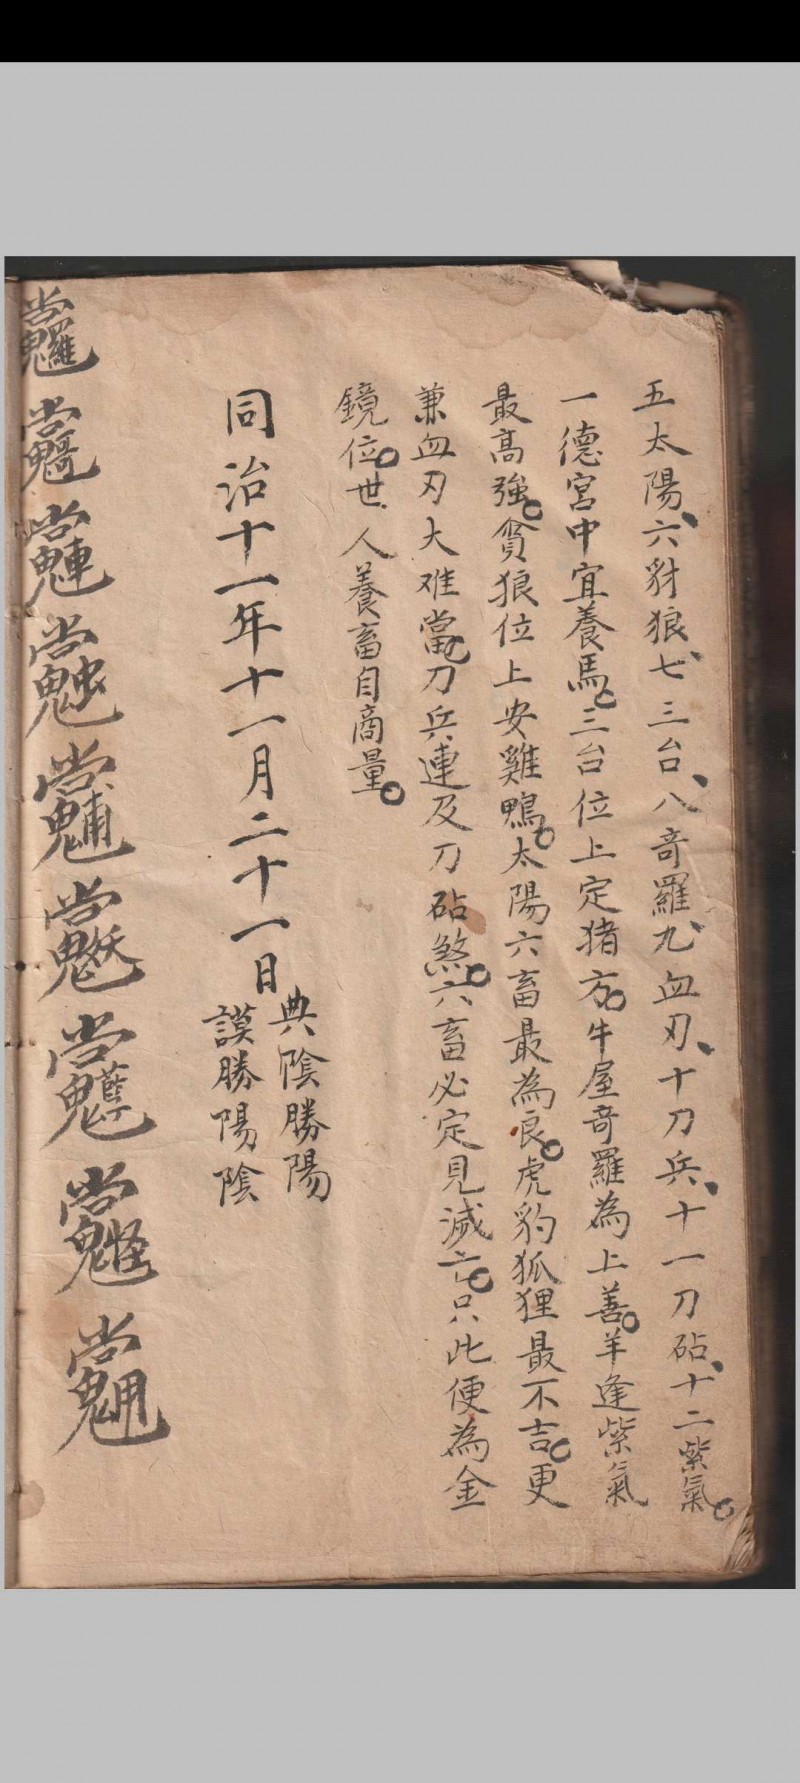 五太陽、六豺狼、七三台、八奇羅、九血刃、十刀兵、十一刀砧、十二紫氣。
一德宮中宜養馬。三台位上定猪方。牛屋奇羅為上善。羊逢紫氣
最高強。貪狼位上安雞鴨。太陽六畜最為良。虎豹狐狸最不吉。更
兼血刃大难當。刀兵連及刀砧煞。六畜必定見滅亡。只此便為金
鏡位。世人養畜自商量。
同治十一年十一月二十一日
典陰勝陽
謨勝陽陰